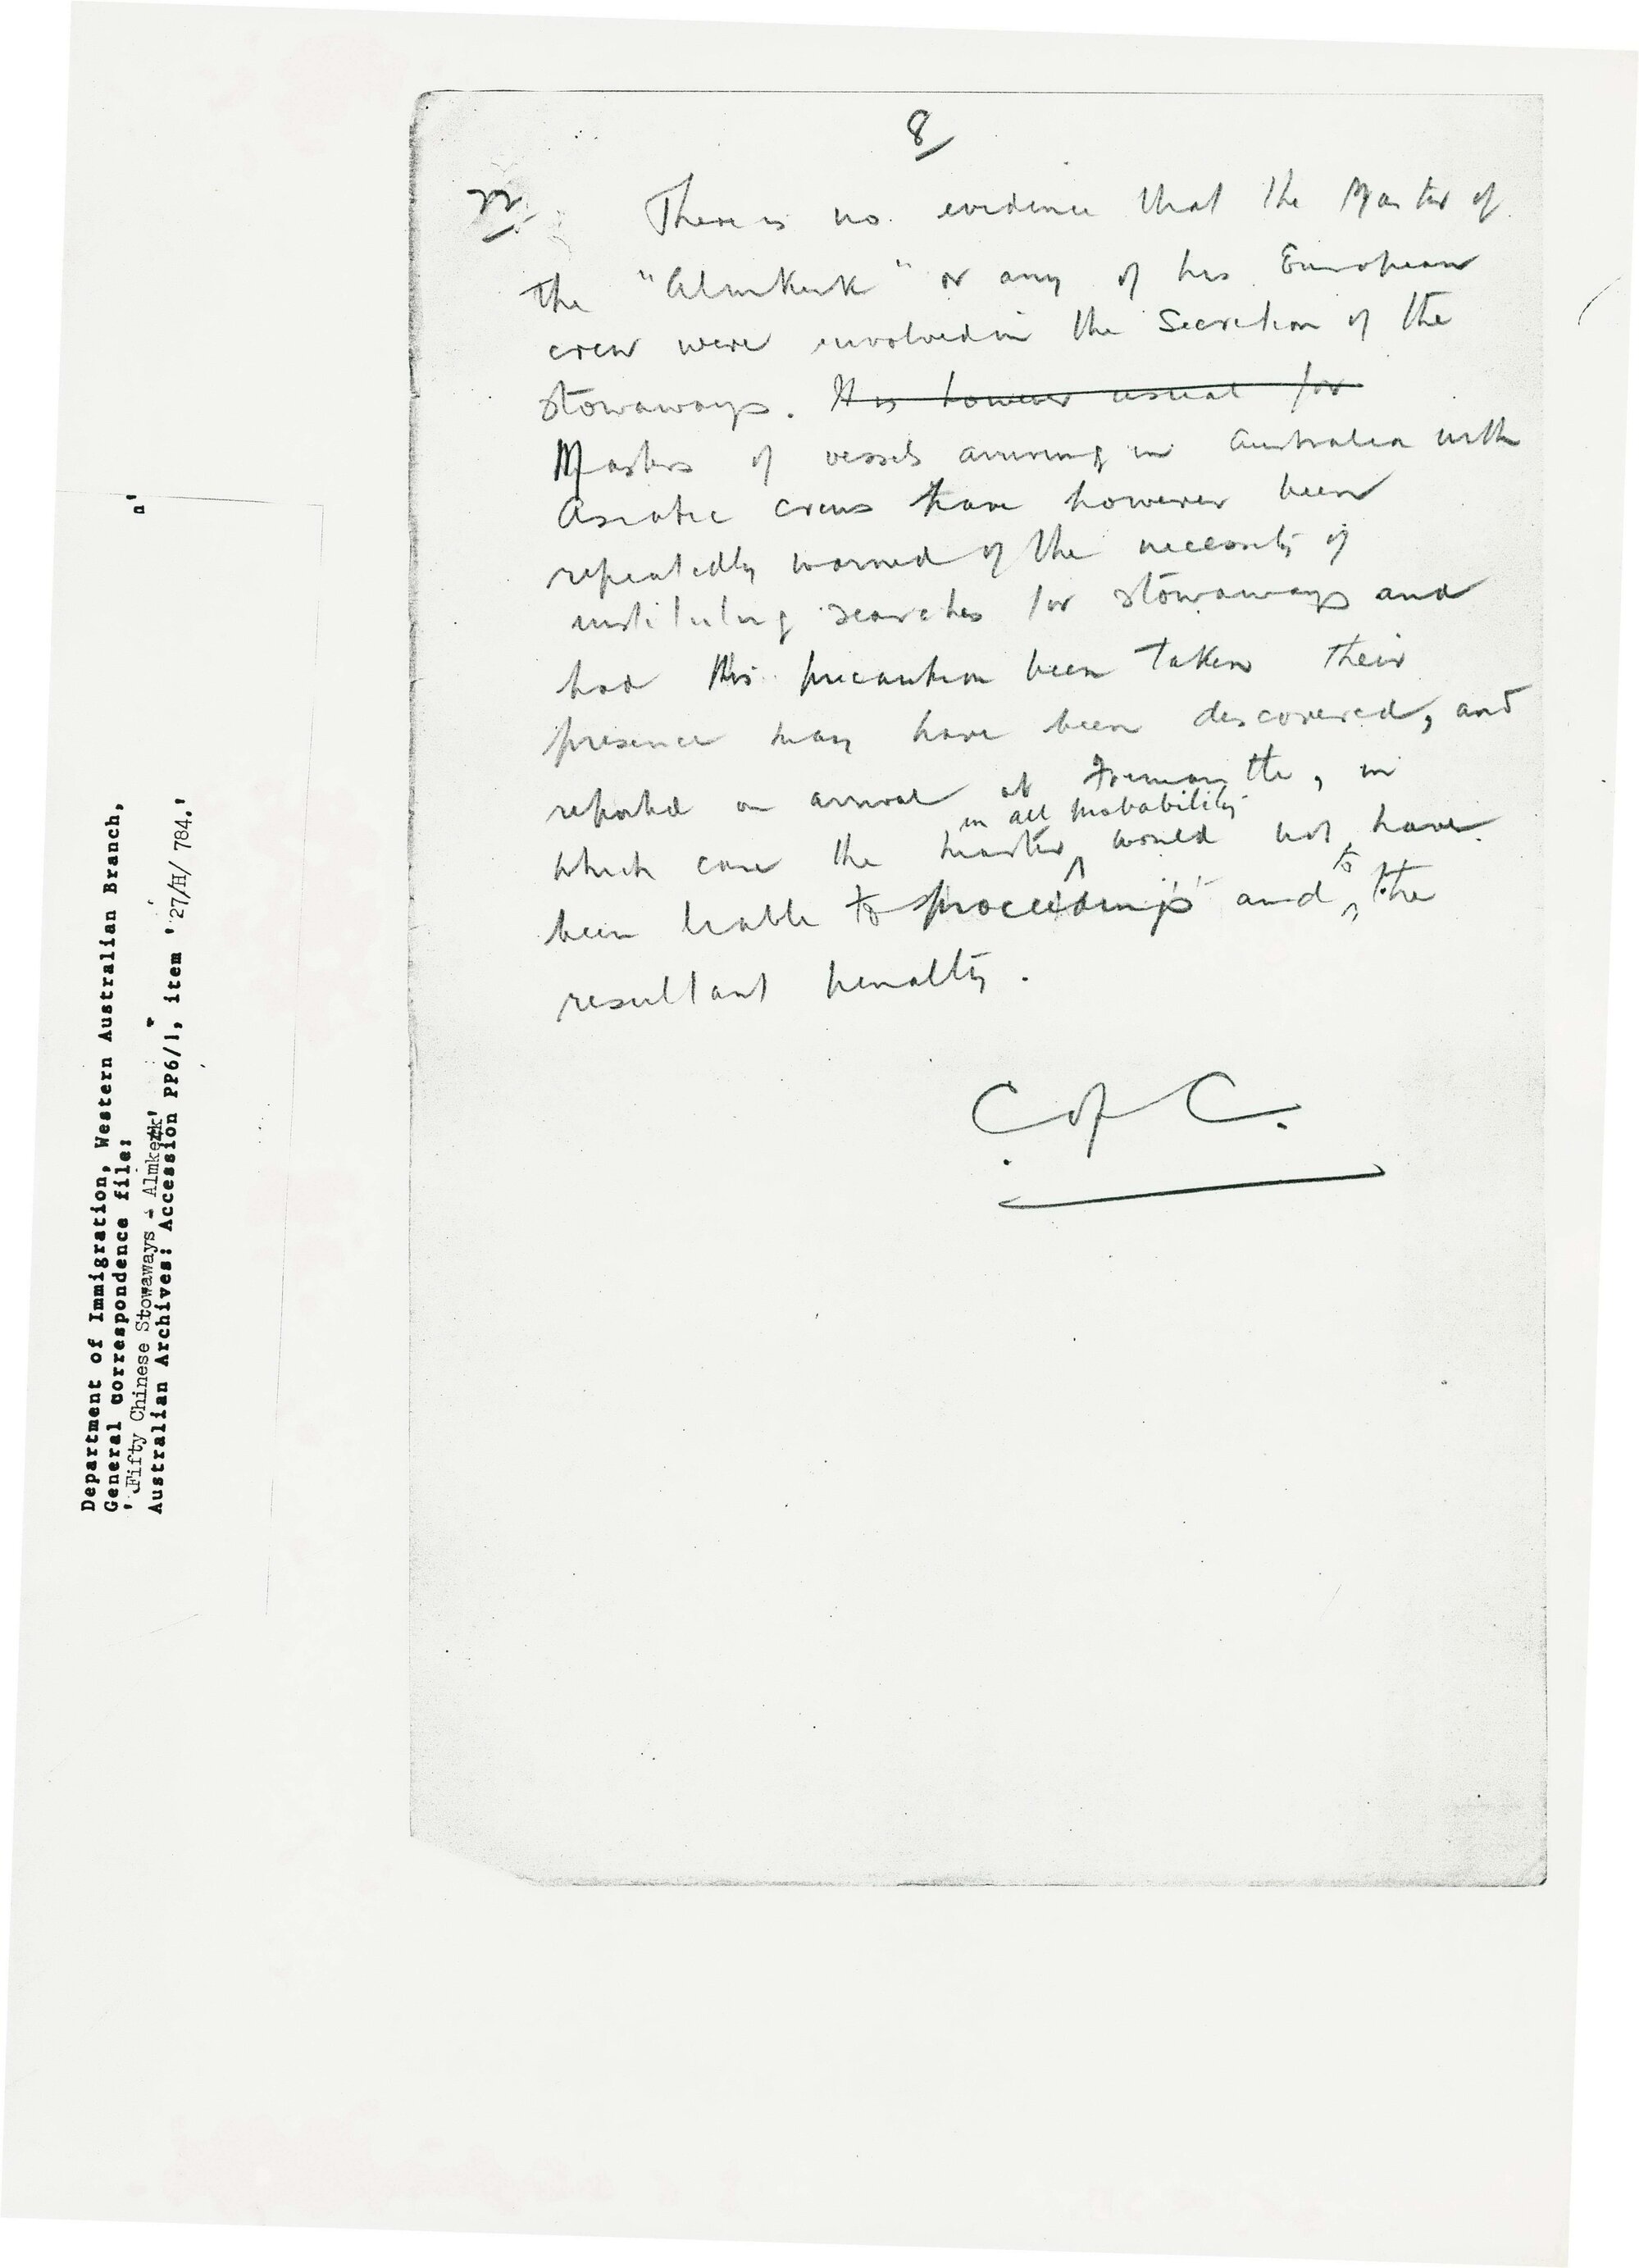 8
22
There is no evidence that the Master of
the "Almkerk" or any of his European
crew were involved in the secretion of the
stowaways. It is however usual for
Masters of vessels arriving in Australia with
Asiatic crews have however been
repeatedly warned of the necessity of
instituting searches for stowaways and
had this precaution been taken their
presence may have been discovered, and
reported on arrival at Fremantle, in
in all probability
which case the master ^ would not have
to
been liable to proceedings and ^ the
resultant penalty.
C of C.
Department of Immigration, Western Australian Branch,
General correspondence file:
'Fifty Chinese Stowaways - Almkerk'
Australian Archives: Accession PP6/1, item '27/H/784.'